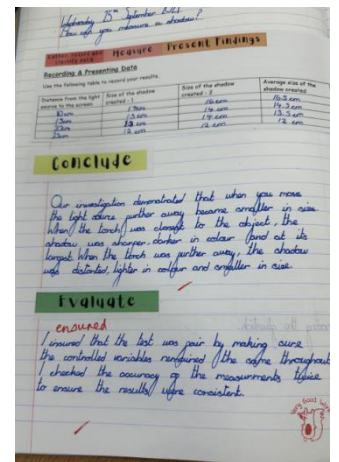 Wednesday 15th September 2021
How can you measure a shadow?
Measure Present Findings
Recording & Presenting Data
Use the following table to record your results.
Distance from the light source to the screen
Size of the shadow created - 1
Size of the shadow created - 2
Average size of the shadow created
10cm
16cm
14cm
14cm
12 cm
12 cm
12 cm
Conclude
Our investigation demonstrated that when you move
the light source further away became smaller in size.
When the torch was closest to the object, the
shadow was sharper, darker in colour and at its
largest. When the torch was further away, the shadow
was distorted, lighter in colour and smaller in size.
Evaluate
ensured
I insured that the test was fair by making sure
the controlled variables remained the same throughout
I checked the accuracy of the measurements twice
to ensure the results were consistent.